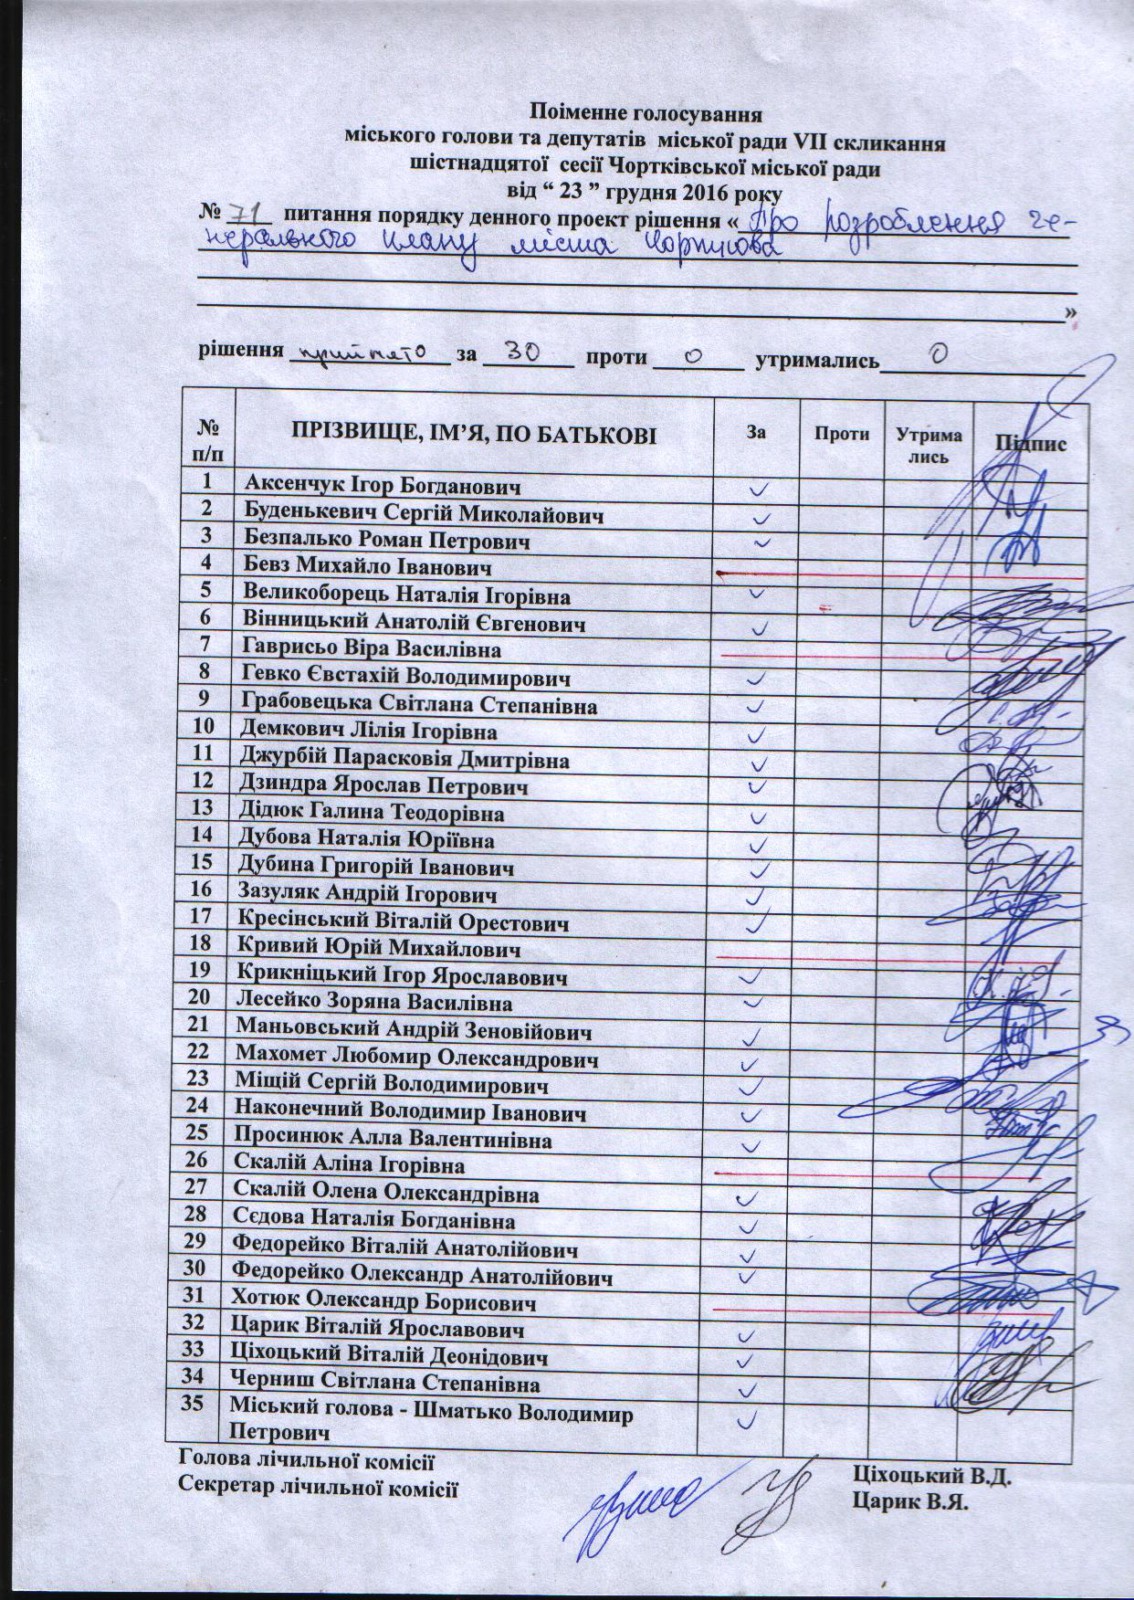 Поіменне голосування
міського голови та депутатів міської ради VII скликання
шістнадцятої сесії Чортківської міської ради
від “ 23 ” грудня 2016 року
№ 71 питання порядку денного проект рішення «Про розроблення ге-
нерального плану міста Чорткова
»
рішення прийнято за 30 проти 0 утримались 0
№ п/п ПРІЗВИЩЕ, ІМ’Я, ПО БАТЬКОВІ За Проти Утрима лись Підпис
1 Аксенчук Ігор Богданович ✓
2 Буденькевич Сергій Миколайович ✓
3 Безпалько Роман Петрович ✓
4 Бевз Михайло Іванович
5 Великоборець Наталія Ігорівна ✓
6 Вінницький Анатолій Євгенович ✓
7 Гаврисьо Віра Василівна
8 Гевко Євстахій Володимирович ✓
9 Грабовецька Світлана Степанівна ✓
10 Демкович Лілія Ігорівна ✓
11 Джурбій Парасковія Дмитрівна ✓
12 Дзиндра Ярослав Петрович ✓
13 Дідюк Галина Теодорівна ✓
14 Дубова Наталія Юріївна ✓
15 Дубина Григорій Іванович ✓
16 Зазуляк Андрій Ігорович ✓
17 Кресінський Віталій Орестович ✓
18 Кривий Юрій Михайлович
19 Крикніцький Ігор Ярославович ✓
20 Лесейко Зоряна Василівна ✓
21 Маньовський Андрій Зеновійович ✓
22 Махомет Любомир Олександрович ✓
23 Міщій Сергій Володимирович ✓
24 Наконечний Володимир Іванович ✓
25 Просинюк Алла Валентинівна ✓
26 Скалій Аліна Ігорівна
27 Скалій Олена Олександрівна ✓
28 Сєдова Наталія Богданівна ✓
29 Федорейко Віталій Анатолійович ✓
30 Федорейко Олександр Анатолійович ✓
31 Хотюк Олександр Борисович
32 Царик Віталій Ярославович ✓
33 Ціхоцький Віталій Деонідович ✓
34 Черниш Світлана Степанівна ✓
35 Міський голова - Шматько Володимир ✓
Петрович
Голова лічильної комісії Ціхоцький В.Д.
Секретар лічильної комісії Царик В.Я.